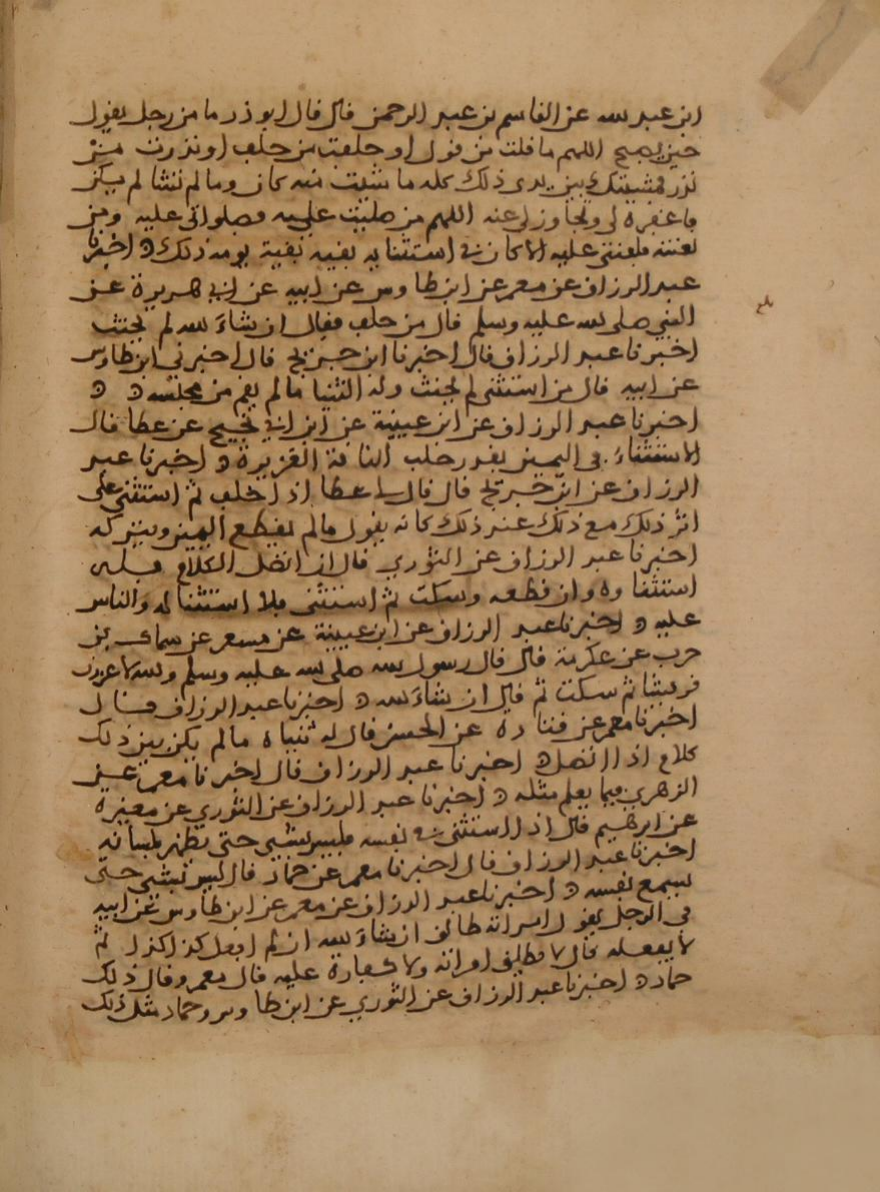 ابن عبد الله عن القاسم بن عبد الرحمن قال قال ابو ذر ما من رجل يقول
حين يصبح اللهم ما قلت من قول او حلفت من حلف او نذرت من
نذر فمشيتك بين يدي ذلك كله ما شيت منه كان وما لم تشا لم يكن
فاغفره لي وتجاوز لي عنه اللهم من صليت عليه فصلواتي عليه ومن
لعنته فلعنتي عليه الا كان في استثنايه بقيه يومه ذلك ه اخبرنا
عبد الرزاق عن معمر عن ابن طاوس عن ابيه عن ابي هريرة عن
النبي صلى الله عليه وسلم قال من حلف فقال ان شاء الله لم يحنث
اخبرنا عبد الرزاق قال اخبرنا ابن جريج قال اخبرني ابن طاوس
عن ابيه قال من استثنى لم يحنث وله الثنيا ما لم يقم من مجلسه ه ه
اخبرنا عبد الرزاق عن ابن عيينة عن ابن ابي نجيح عن عطا قال
الاستثناء في اليمين بقدر حلب الناقة الغزيرة ه اخبرنا عبد
الرزاق عن ابن جريج قال قال عطا اذا حلف ثم استثنى على
اثر ذلك مع ذلك عند ذلك كانه يقول ما لم يقطع اليمين ويتركه
اخبرنا عبد الرزاق عن الثوري قال ان اتصل الكلام فله
استثناوه وان قطعه وسكت ثم استثنى فلا استثنا له والناس
عليه ه اخبرنا عبد الرزاق عن ابن عيينة عن مسعر عن سماك بن
حرب عن عكرمة قال قال رسول الله صلى الله عليه وسلم والله لاغزون
قريشا ثم سكت ثم قال ان شاء الله ه اخبرنا عبد الرزاق قال
اخبرنا معمر عن قتادة عن الحسن قال له ثنياه ما لم يكن بين ذلك
كلام اذا اتصل ه اخبرنا عبد الرزاق قال اخبرنا معمر عن
الزهري فيما يعلم مثله ه اخبرنا عبد الرزاق عن الثوري عن مغيرة
عن ابرهيم قال اذا استثنى في نفسه فليس بشي حتى يظهر بلسانه
اخبرنا عبد الرزاق قال اخبرنا معمر عن حماد قال ليس بشي حتى
يسمع نفسه ه اخبرنا عبد الرزاق عن معمر عن ابن طاوس عن ابيه
في الرجل يقول لامراته طالق ان شاء الله ان لم افعل كذا كذا ثم
لا يفعله قال لا تطلق امراته ولا كفارة عليه قال معمر وقال ذلك
حماد ه اخبرنا عبد الرزاق عن الثوري عن ابن طاوس وحماد مثل ذلك
بلغ